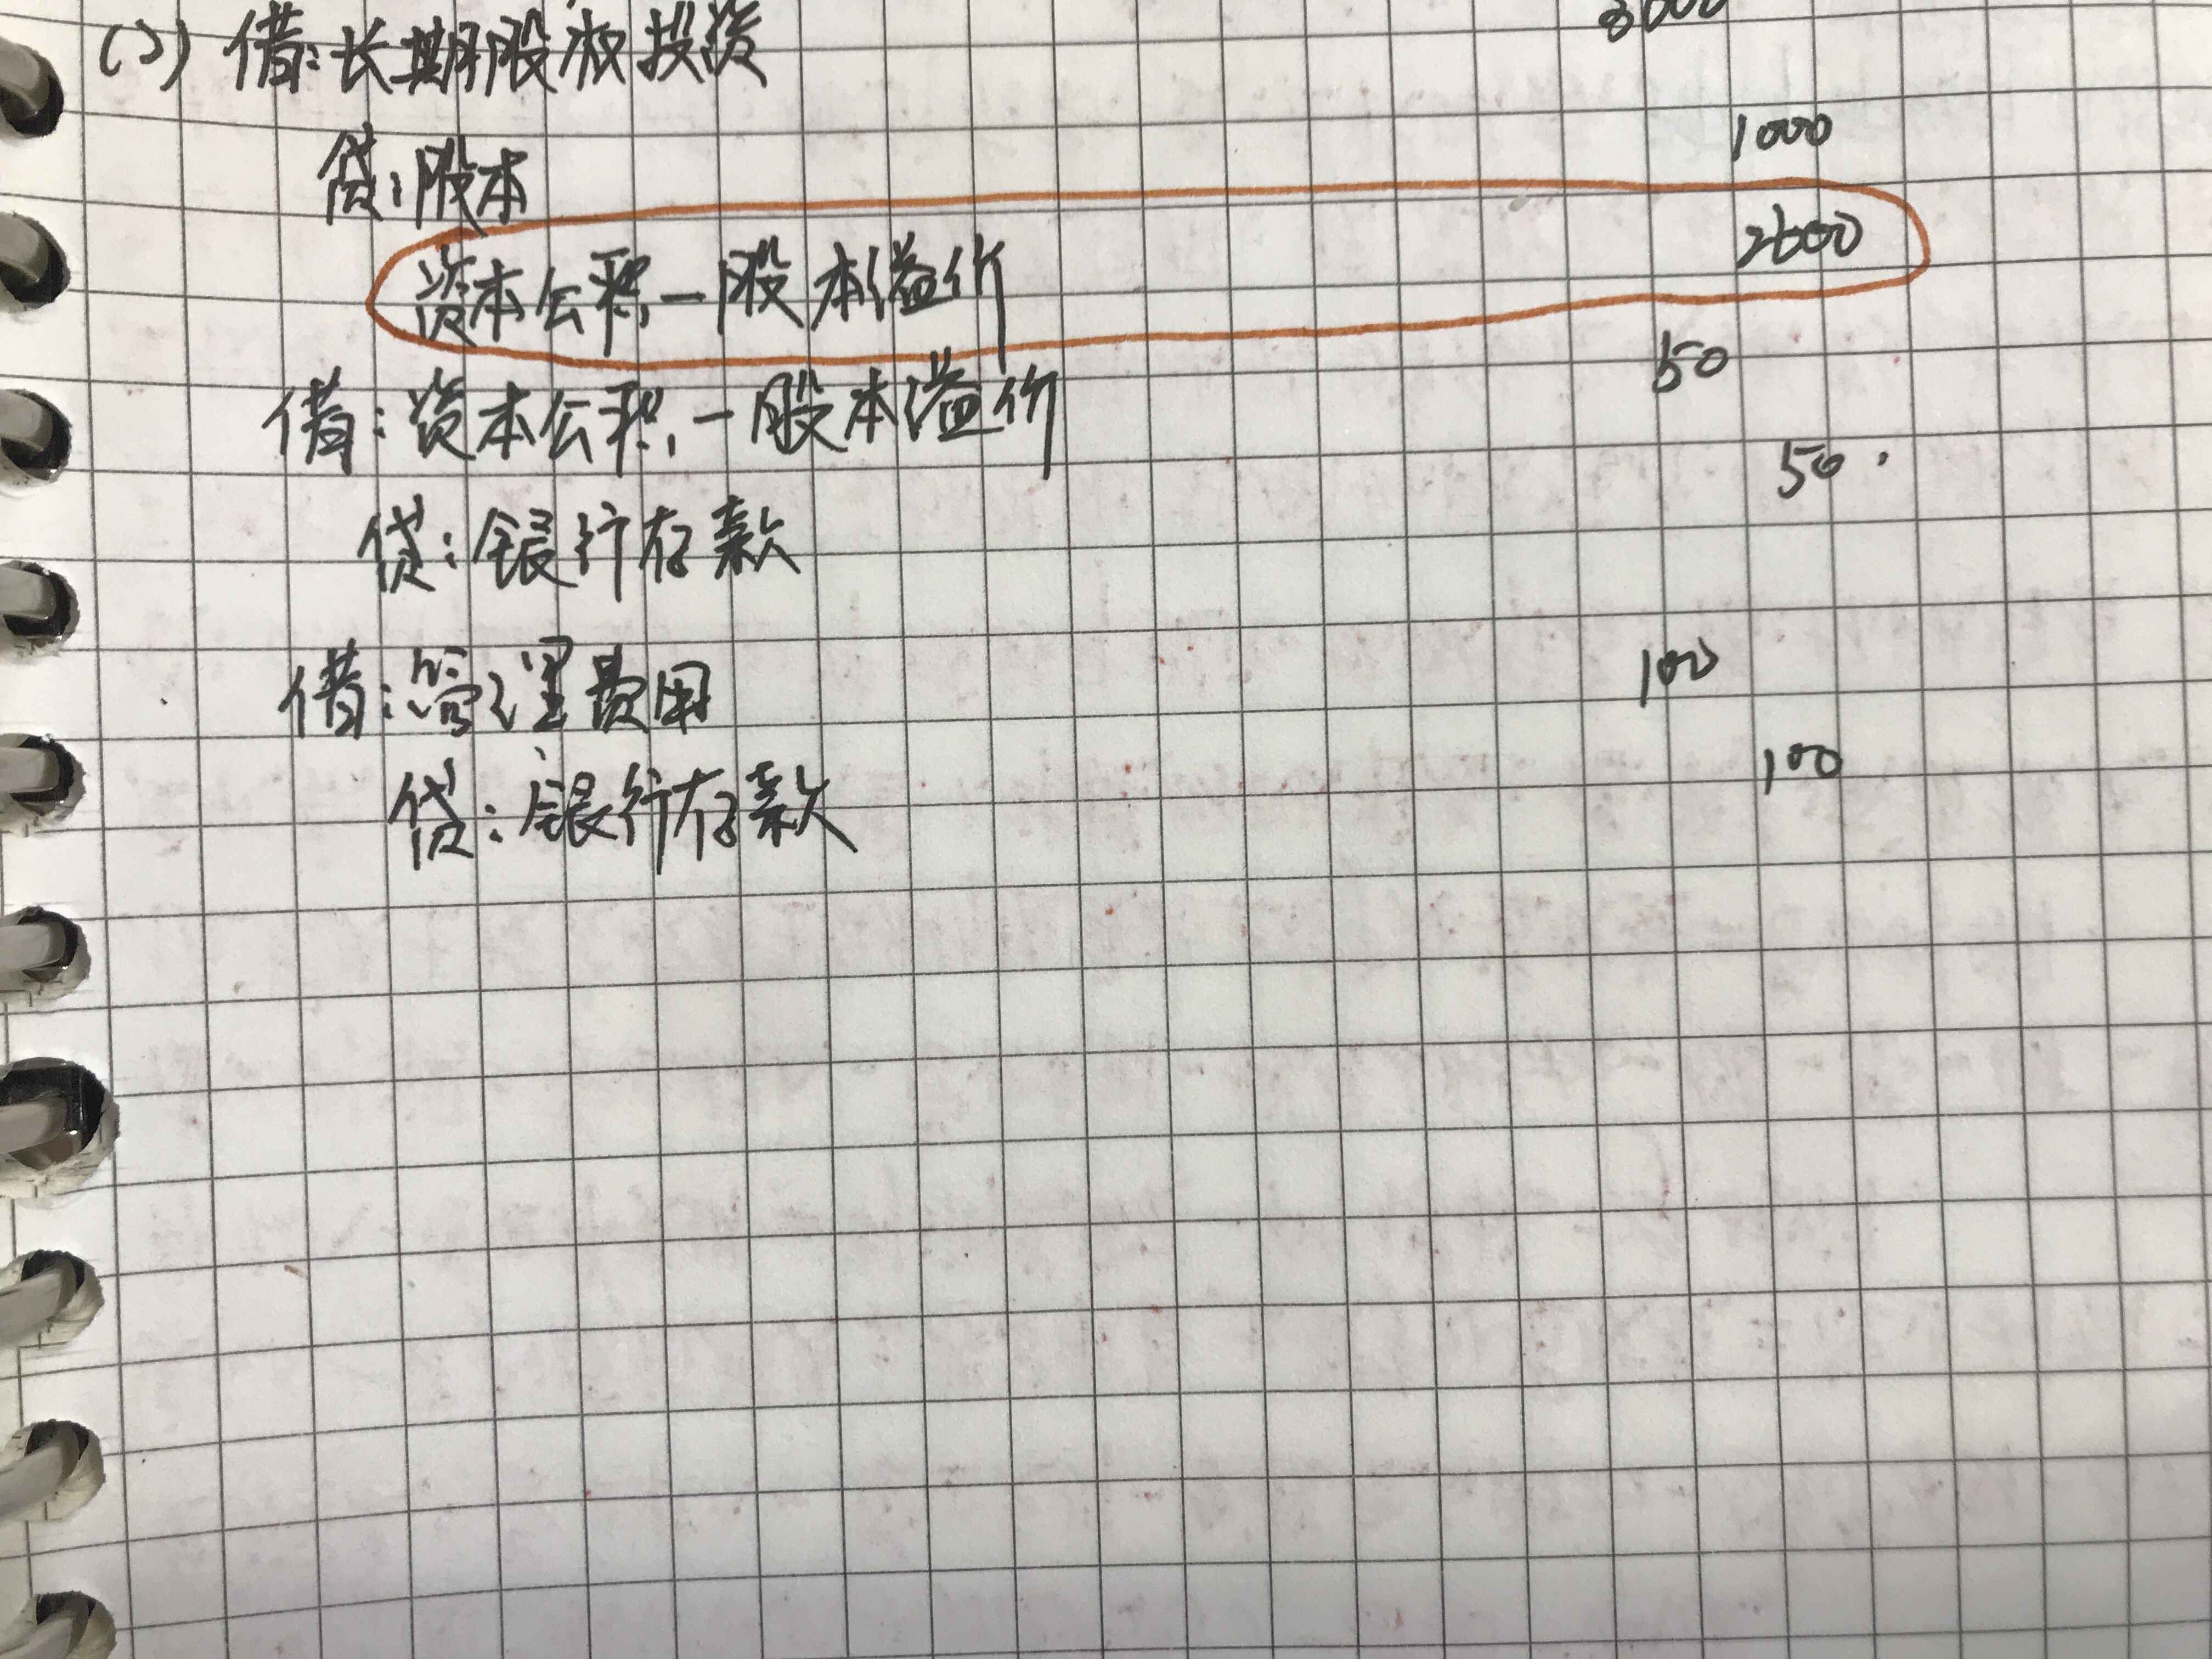 (2) 借:长期股权投资 3600
贷:股本 1000
资本公积-股本溢价 2600
借:资本公积-股本溢价 50
贷:银行存款 50
借:管理费用 100
贷:银行存款 100